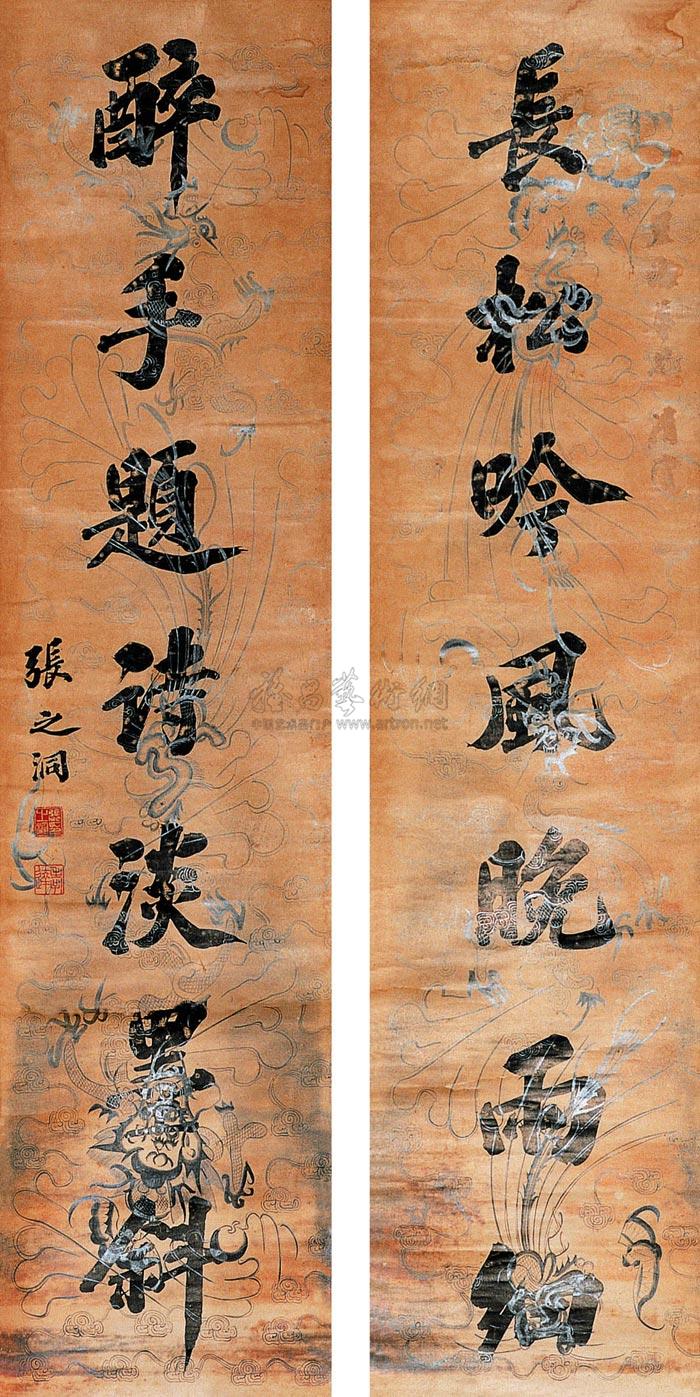 長松吟風晚雨細
醉手題詩淡墨斜
張之洞
雅昌藝術網
中国艺术品门户 www.artron.net